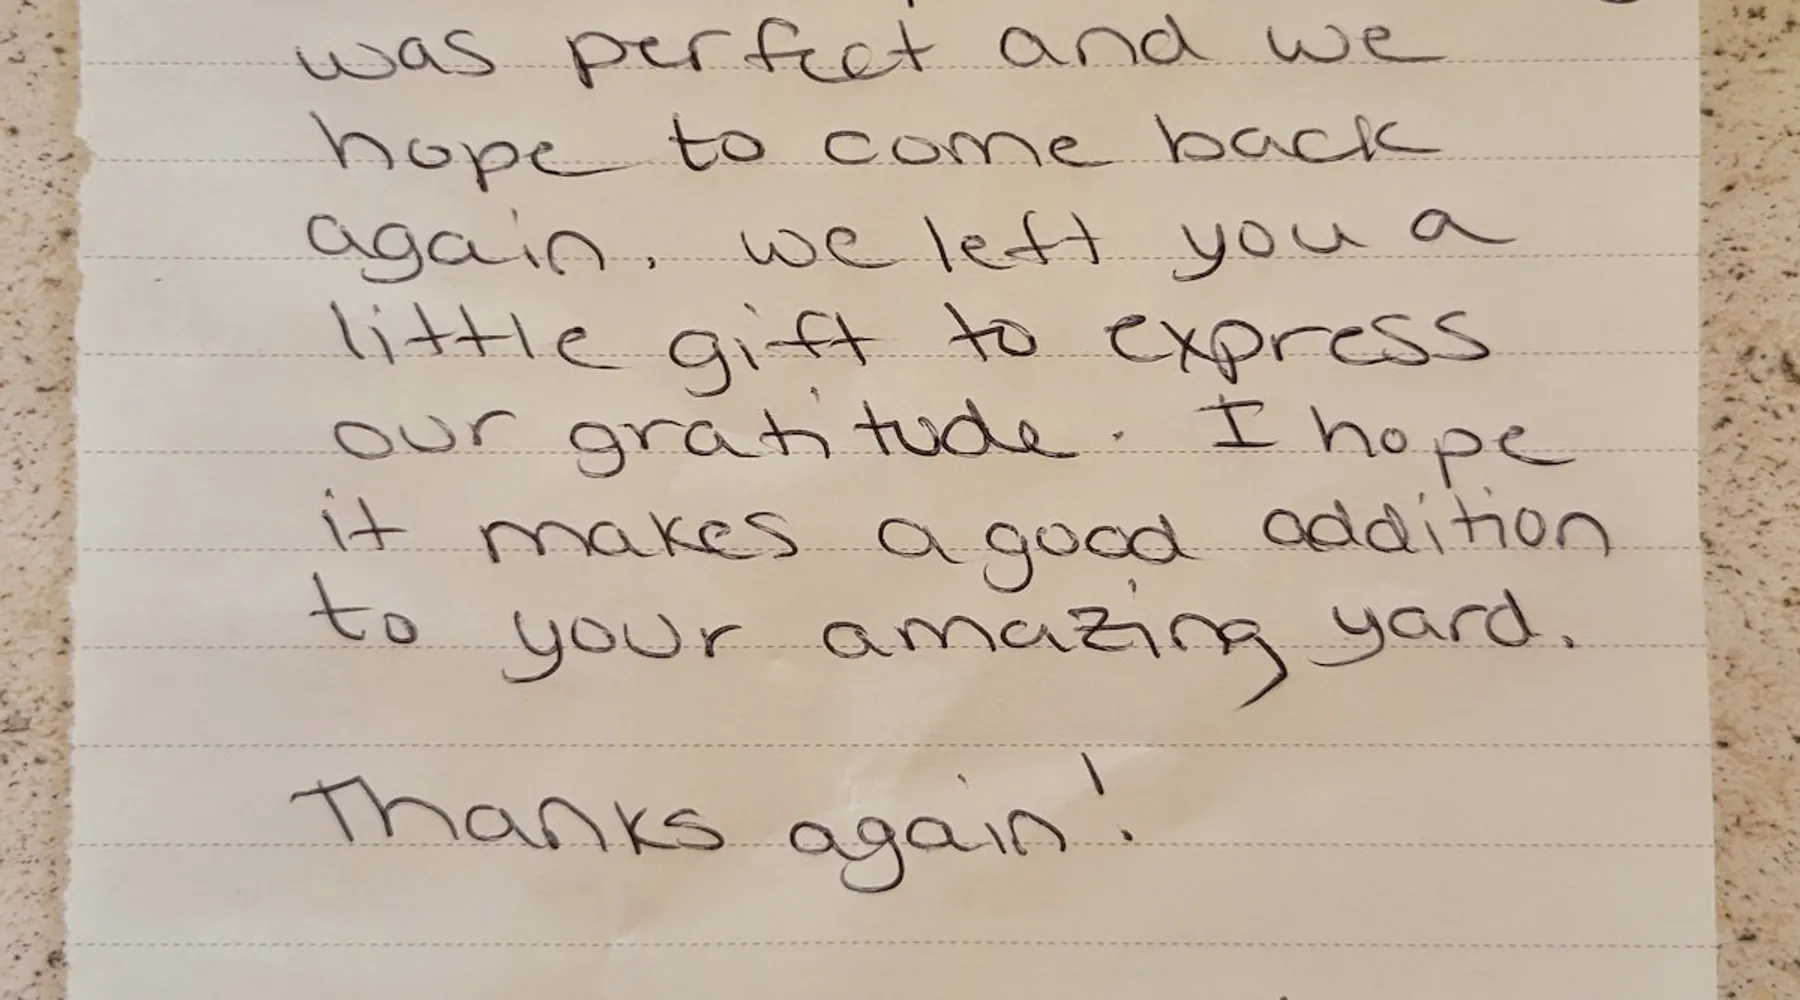 was perfect and we
hope to come back
again. we left you a
little gift to express
our gratitude. I hope
it makes a good addition
to your amazing yard.
Thanks again!